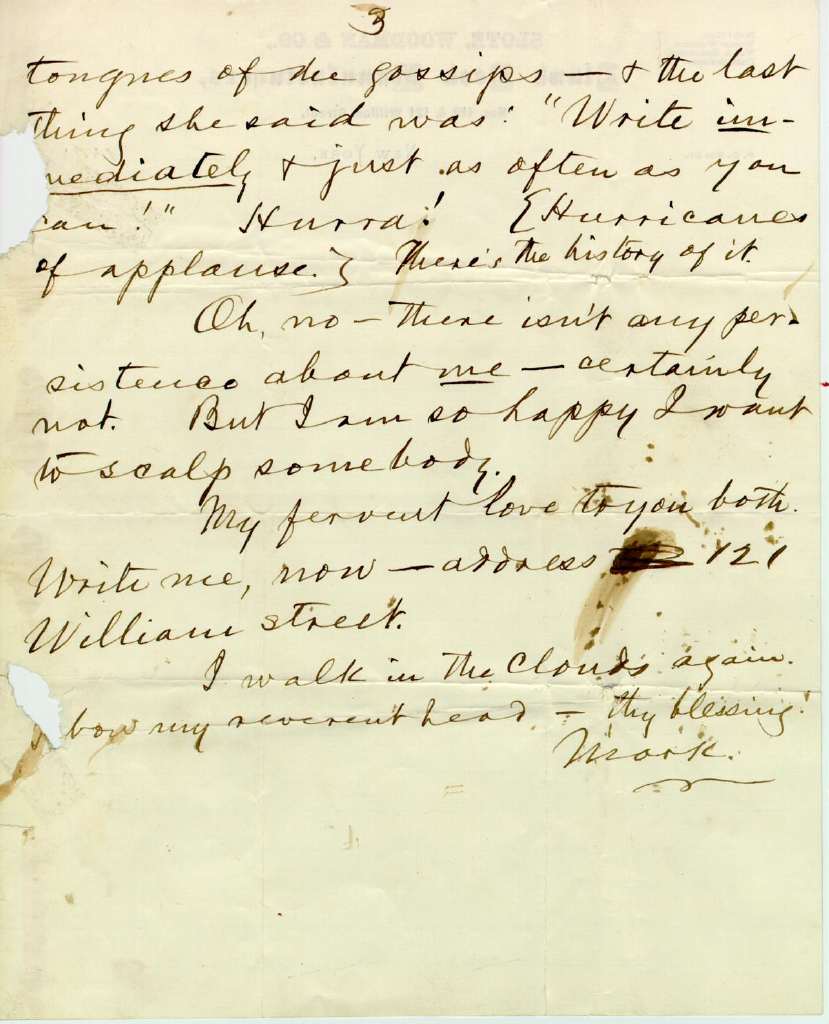 3
tongues of the gossips — & the last
thing she said was: "Write im-
mediately & just as often as you
can!" Hurra! {Hurricanes
of applause.} There's the history of it.
Oh, no — there isn't any per-
sistence about me — certainly
not. But I am so happy I want
to scalp somebody.
My fervent love to you both.
Write me, now — address 121
William street.
I walk in the clouds again.
I bow my reverent head — thy blessing!
Mark.